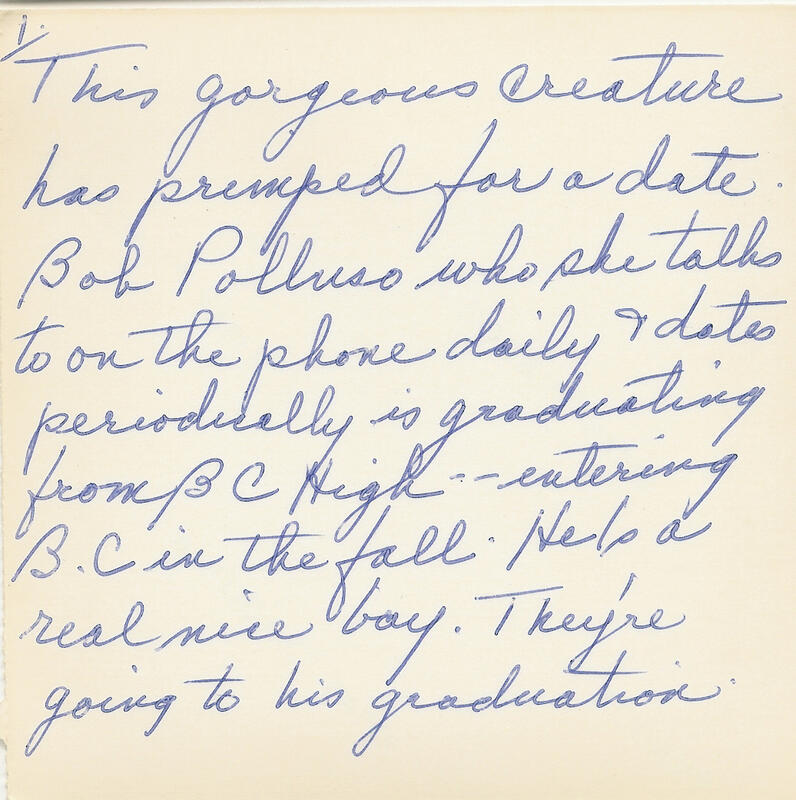 1.
This gorgeous creature
has primped for a date.
Bob Polluso who she talks
to on the phone daily & dates
periodically is graduating
from BC High -- entering
B.C in the fall. He is a
real nice boy. They're
going to his graduation.